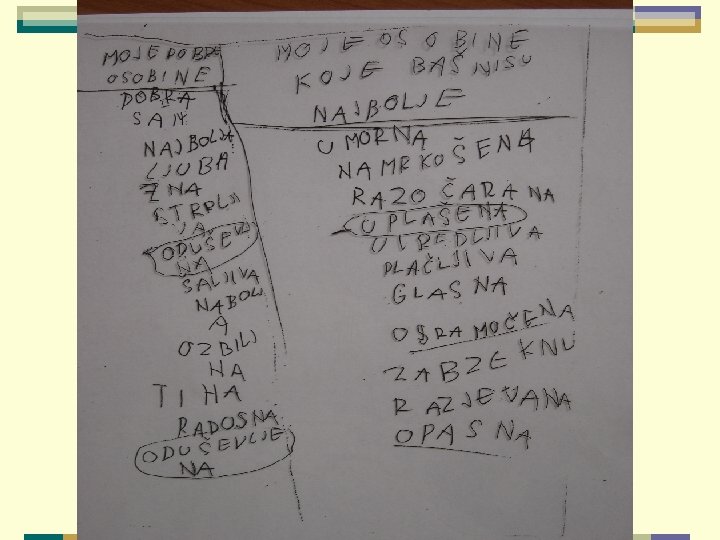 MOJE DOBRE
OSOBINE
DOBRA
SAM
NAJBOLJA
LJUBA
ZNA
STRPLJI
JA
ODUŠEV
NA
ŠALJIVA
NABOLJ
A
OZBILJ
NA
TIHA
RADOSNA
ODUŠEVLJE
NA
MOJE OSOBINE
KOJE BAŠ NISU
NAJBOLJE
UMORNA
NAMRKOŠENA
RAZOČARANA
UPLAŠENA
PLAČLJIVA
GLASNA
OSRAMOČENA
ZABZEKNU
RAZJEVANA
OPASNA